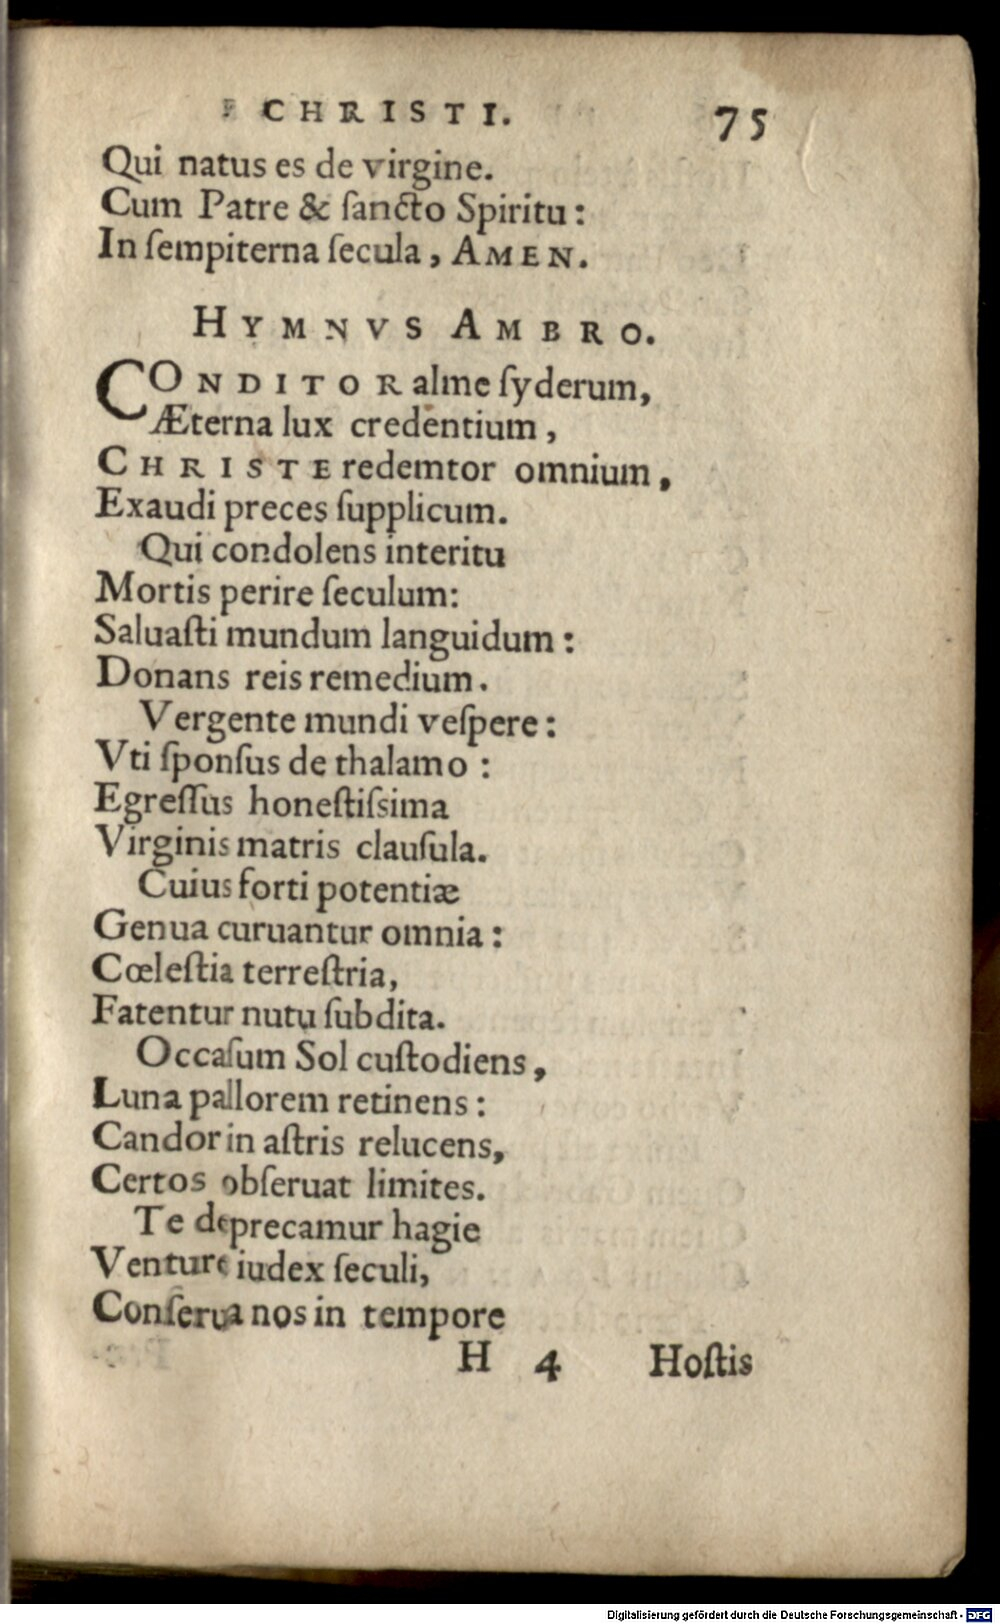 CHRISTI. 75
Qui natus es de virgine.
Cum Patre & ſancto Spiritu:
In ſempiterna ſecula, AMEN.
HYMNVS AMBRO.
CONDITOR alme ſyderum,
Æterna lux credentium,
CHRISTE redemtor omnium,
Exaudi preces ſupplicum.
Qui condolens interitu
Mortis perire ſeculum:
Saluaſti mundum languidum:
Donans reis remedium.
Vergente mundi veſpere:
Vti ſponſus de thalamo:
Egreſſus honeſtiſsima
Virginis matris clauſula.
Cuius forti potentiæ
Genua curuantur omnia:
Cœleſtia terreſtria,
Fatentur nutu ſubdita.
Occaſum Sol cuſtodiens,
Luna pallorem retinens:
Candor in aſtris relucens,
Certos obſeruat limites.
Te deprecamur hagie
Venture iudex ſeculi,
Conſerua nos in tempore
H 4 Hoſtis
Digitalisierung gefördert durch die Deutsche Forschungsgemeinschaft - DFG